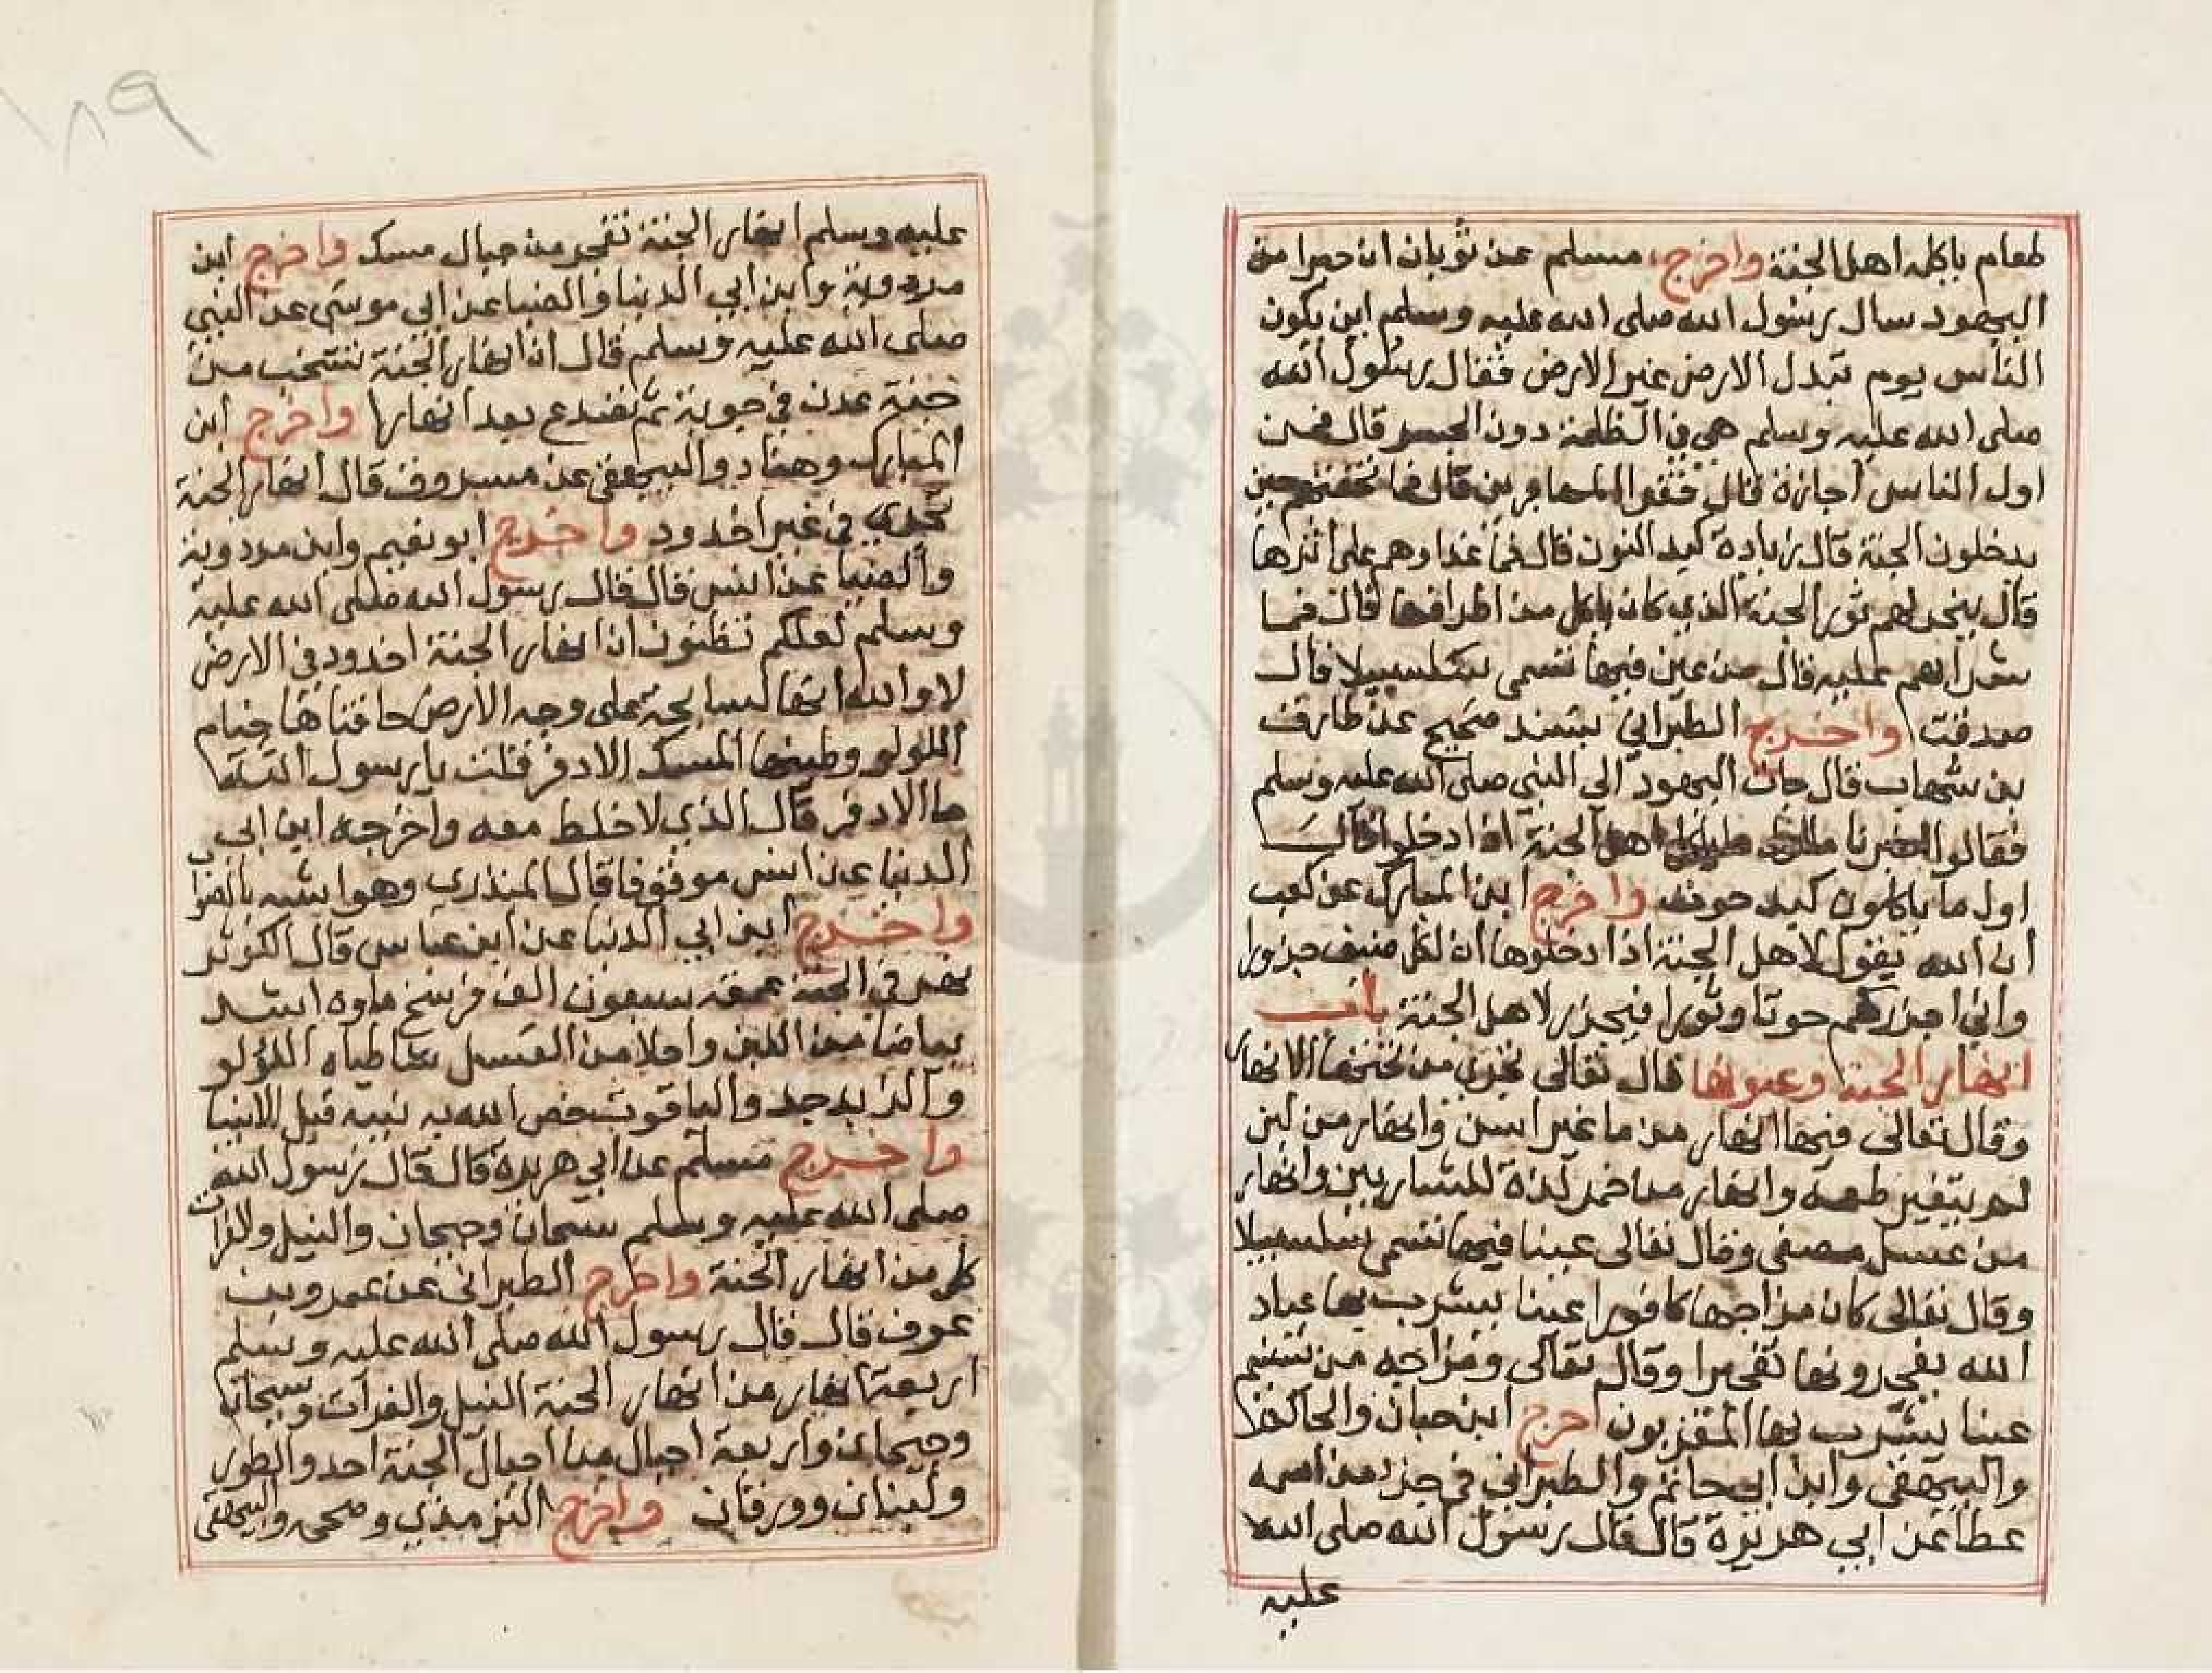 طعام ياكله اهل الجنة واخرج مسلم عن ثوبان ان حبرا من
اليهود سال رسول الله صلى الله عليه وسلم اين يكون
الناس يوم تبدل الارض غير الارض فقال رسول الله
صلى الله عليه وسلم هم في الظلمة دون الجسر قال فمن
اول الناس اجازة قال فقرا المهاجرين قال فما تحفتهم حين
يدخلون الجنة قال زيادة كبد النون قال فما غداوهم على اثرها
قال ينحر لهم ثور الجنة الذي كان ياكل من اطرافها قال فما
شرابهم عليه قال من عين فيها تسمى سلسبيلا قال
صدقت واخرج الطبراني بسند صحيح عن طارق
بن شهاب قال جات اليهود الى النبي صلى الله عليه وسلم
فقالوا اخبرنا اهل الجنة اذا دخلوا قال
اول ما ياكلون كبد حوت واخرج ابن المبارك عن كعب
ان الله يقول لاهل الجنة اذا دخلوها ان لكل ضيف جزورا
واني اجزركم حوتا وثورا فيجزر لاهل الجنة باب
انهار الجنة وعيونها قال تعالى تجري من تحتها الانهار
وقال تعالى فيها انهار من ما غير اسن وانهار من لبن
لم يتغير طعمه وانهار من خمر لذة للشاربين وانهار
من عسل مصفى وقال تعالى عينا فيها تسمى سلسبيلا
وقال تعالى كان مزاجها كافورا عينا يشرب بها عباد
الله يفجرونها تفجيرا وقال تعالى ومزاجه من تسنيم
عينا يشرب بها المقربون اخرج ابن حبان والحاكم
والبيهقي وابن ابي حاتم والطبراني في جزء من اسمه
عطا عن ابي هريرة قال قال رسول الله صلى الله
عليه
١٨٩
عليه وسلم انهار الجنة تفجر من جبال مسك واخرج ابن
مردوية وابن ابي الدنيا والضيا عن ابي موسى عن النبي
صلى الله عليه وسلم قال ان انهار الجنة تشخب من
جنة عدن في جوبة ثم تصدع بعد انهارا واخرج ابن
المبارك وهناد والبيهقي عن مسروق قال انهار الجنة
تجري في غير اخدود واخرج ابو نعيم وابن مردوية
والضيا عن انس قال قال رسول الله صلى الله عليه
وسلم لعلكم تظنون ان انهار الجنة اخدود في الارض
لا والله انها لسابحة على وجه الارض حافتاها خيام
اللولو وطينها المسك الادفر قلت يا رسول الله
ما الادفر قال الذي لا خلط معه واخرجه ابن ابي
الدنيا عن انس موقوفا قال المنذري وهو اشبه بالصواب
واخرج ابن ابي الدنيا عن ابن عباس قال الكوثر
نهر في الجنة عمقه سبعون الف فرسخ ماوه اشد
بياضا من اللبن واحلا من العسل شاطياه اللؤلو
والزبرجد والياقوت خص الله به نبيه قبل الانبيا
واخرج مسلم عن ابي هريرة قال قال رسول الله
صلى الله عليه وسلم سيحان وجيحان والنيل والفرات
كل من انهار الجنة واخرج الطبراني عن عمرو بن
عوف قال قال رسول الله صلى الله عليه وسلم
اربعة انهار من انهار الجنة النيل والفرات وسيحان
وجيحان واربعة اجبال من اجبال الجنة احد والطور
ولبنان وورقان واخرج الترمذي وصححه والبيهقي